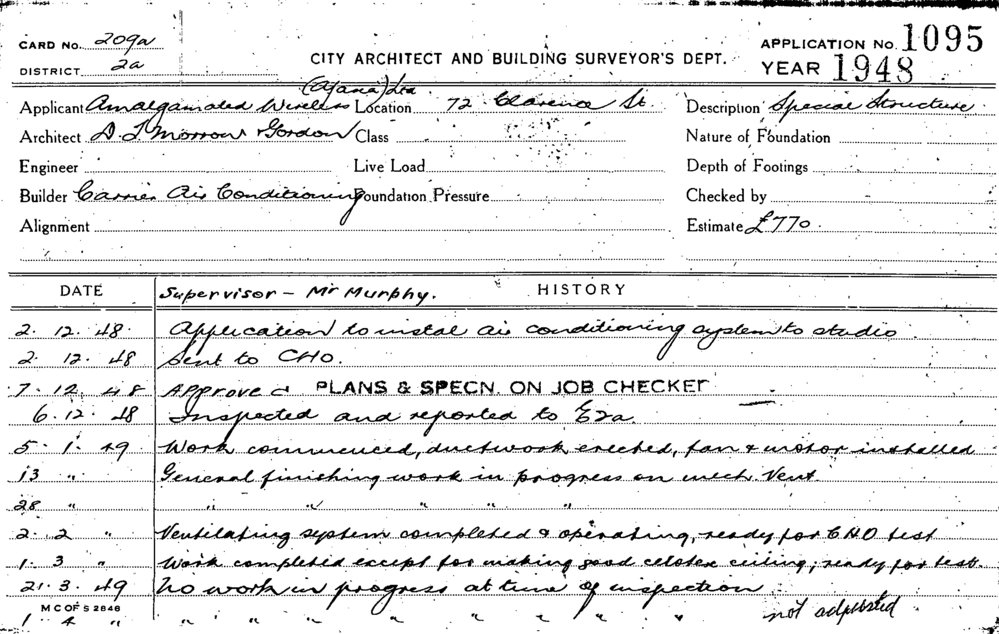 CARD No. 209a
DISTRICT 2a
CITY ARCHITECT AND BUILDING SURVEYOR'S DEPT.
APPLICATION No. 1095
YEAR 1948
Applicant Amalgamated Wireless (A/asia) Ltd
Location 72 Clarence St.
Description Special Structure
Architect D T Morrow & Gordon
Class
Nature of Foundation
Engineer
Live Load
Depth of Footings
Builder Carrier Air Conditioning
Foundation Pressure
Checked by
Alignment
Estimate £770.
DATE Supervisor - Mr Murphy. HISTORY
2. 12. 48. Application to instal air conditioning system to studio
2. 12. 48 Sent to CHO.
7. 12. 48 Approved PLANS & SPECN. ON JOB CHECKED
6. 12. 48 Inspected and reported to E2a.
5. 1. 49 Work commenced, ductwork erected, fan & motor installed
13 " General finishing work in progress on mech. Vent.
28 " " " " " "
2. 2 " Ventilating system completed & operating, ready for CHO test
1. 3 " Work completed except for making good celotex ceiling; ready for test.
21. 3. 49 No work in progress at time of inspection
M C OF S 2646
1 4 " " " " " " " " not adjusted